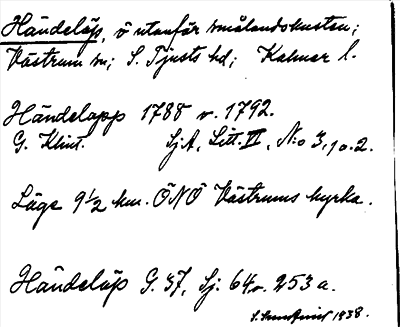 Händelöp, ö utanför smålandskusten;
Västrum sn; S. Tjusts hd; Kalmar l.
Händelopp 1788 o. 1792.
G. Klint. SjA, Litt. VI, N:o 3, 1 o. 2.
Läge 9½ km. ÖNÖ Västrums kyrka.
Händelöp G. 37, Sj. 64 o. 253 a.
1938.